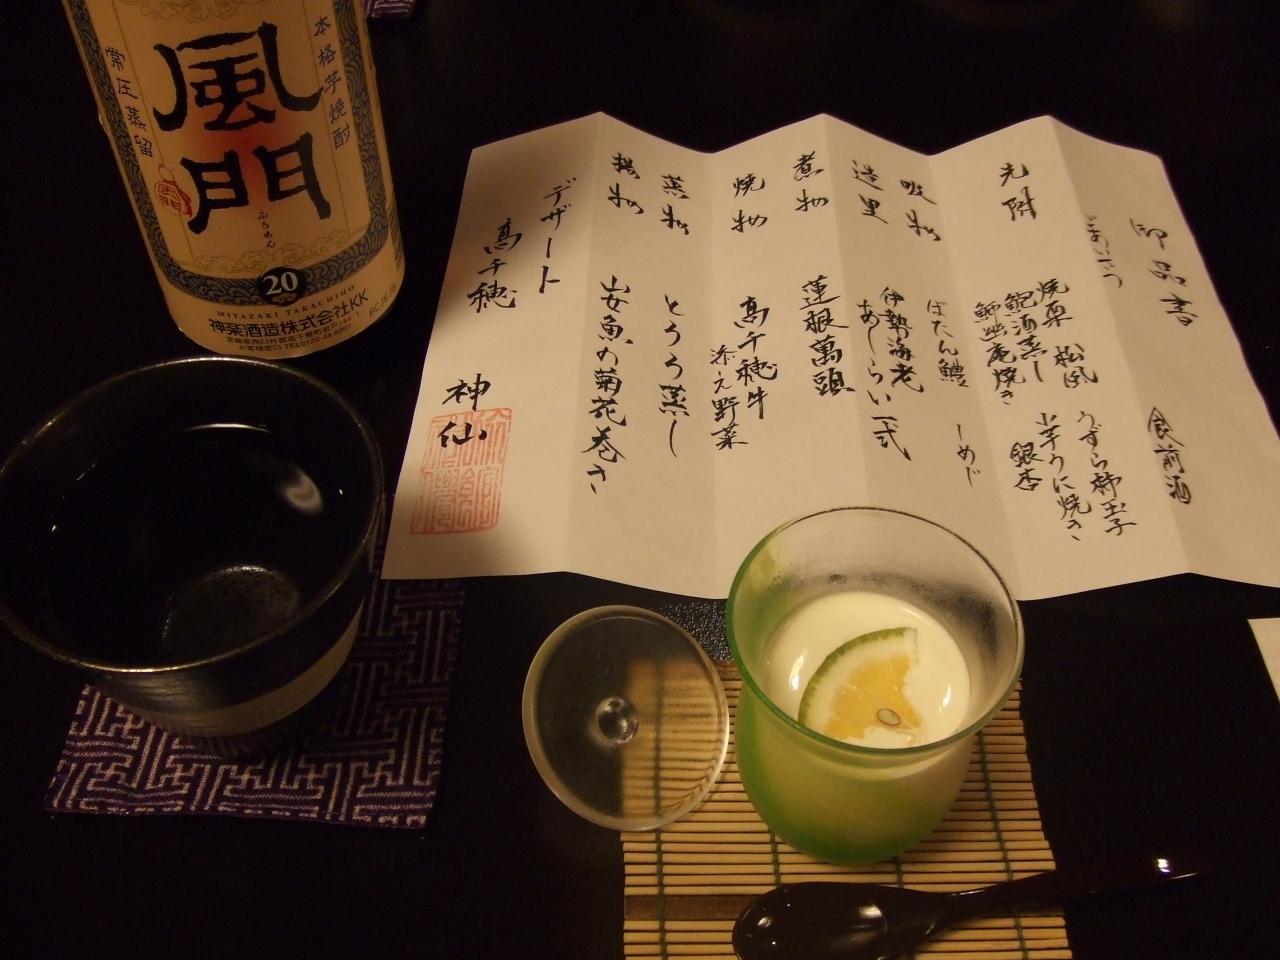 本格芋焼酎
風門
ふうもん
常圧蒸留
20
MIYAZAKI TAKACHIHO
神楽酒造株式会社KK
御品書
ごあいさつ
食前酒
先附
焼栗 松風 うずら柿玉子
鮑酒蒸し 小芋うに焼き
鰤幽庵焼き 銀杏
吸物
ぼたん鱧 しめじ
造里
伊勢海老
あしらい一式
煮物
蓮根萬頭
焼物
高千穂牛
添え野菜
蒸物
とろろ蒸し
揚物
山女魚の菊花巻き
デザート
高千穂 神仙